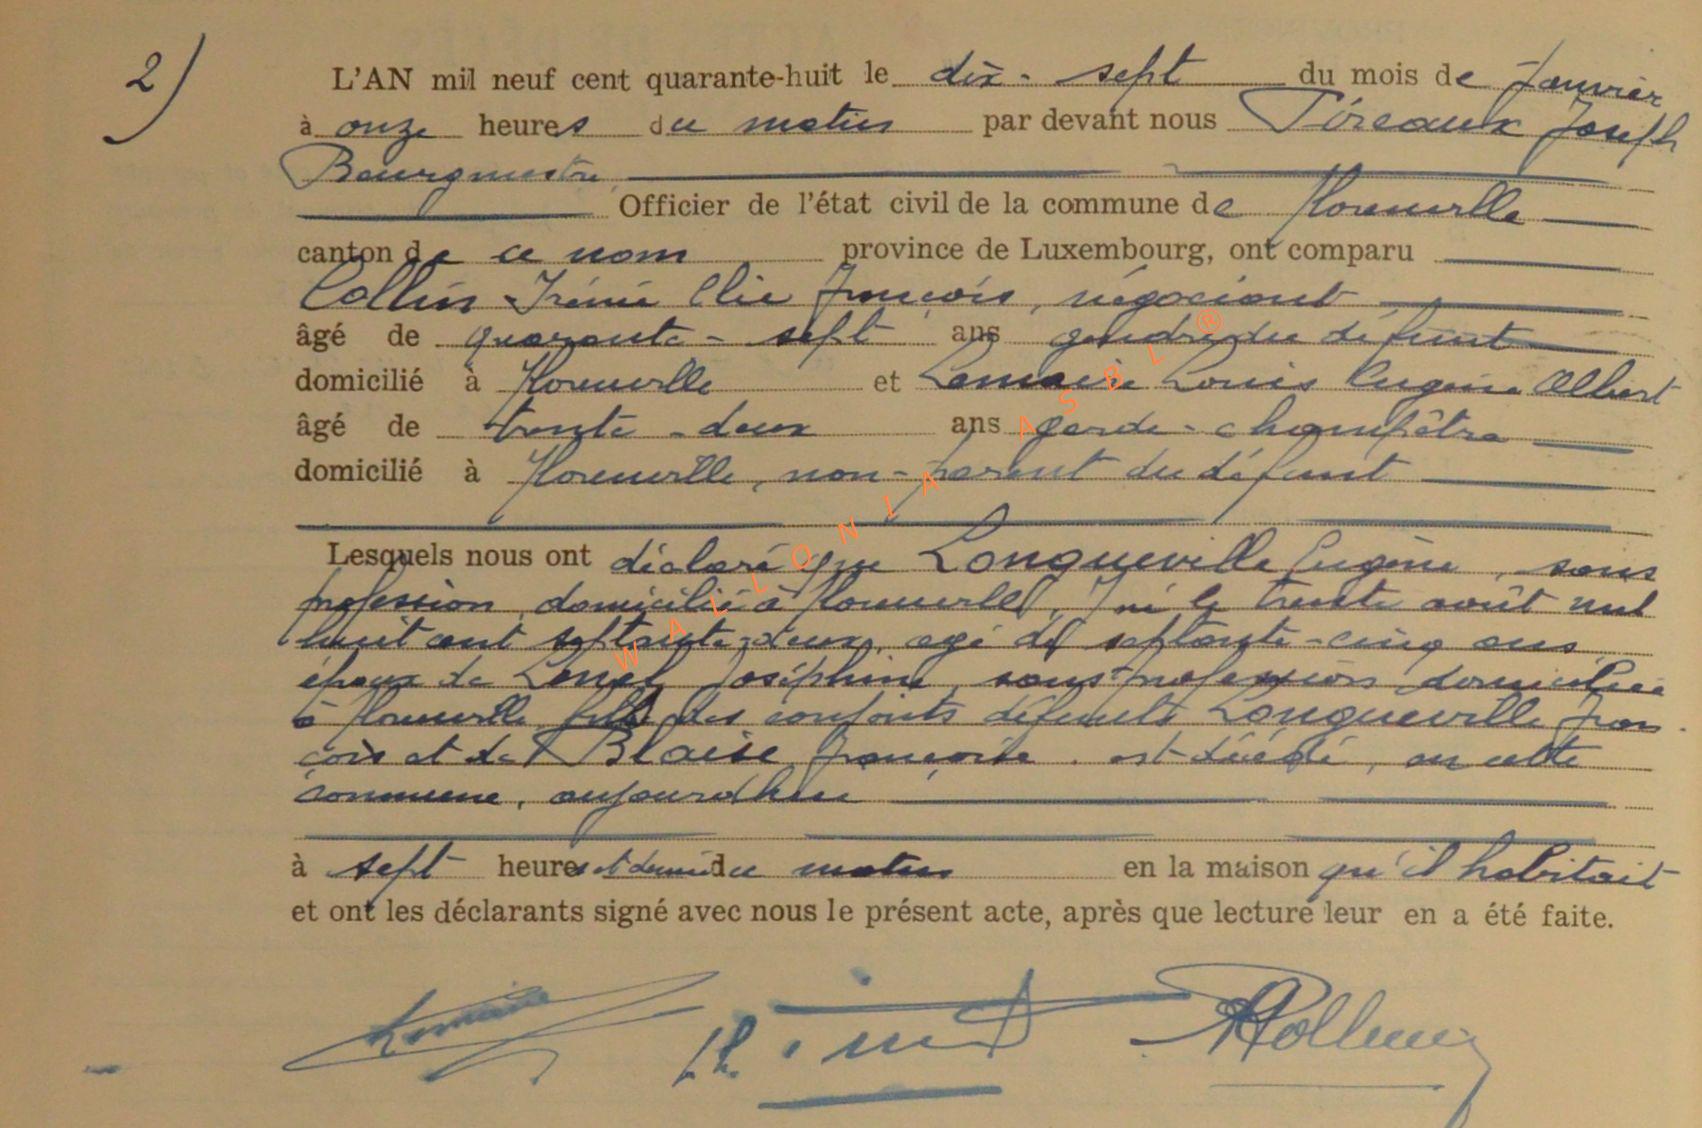 2) L'AN mil neuf cent quarante-huit le dix-sept du mois de Janvier
à onze heures du matin par devant nous Pireaux Joseph
Bourgmestre
Officier de l'état civil de la commune de Florenville
canton de ce nom province de Luxembourg, ont comparu
Collin Irénée Elie François, négociant
âgé de quarante-sept ans gendre du défunt
domicilié à Florenville et Lemaire Louis Eugène Albert
âgé de trente-deux ans garde-champêtre
domicilié à Florenville, non-parent du défunt
Lesquels nous ont déclaré que Longueville Eugène, sans
profession, domicilié à Florenville, né le trente août mil
huit cent septante-deux, agé de septante-cinq ans
époux de Joséphine, sans profession domiciliée
à Florenville fils des conjoints défunts Longueville Fran
çois et de Blaise Françoise. est décédé, en cette
commune, aujourd'hui
à sept heures et demie du matin en la maison qu'il habitait
et ont les déclarants signé avec nous le présent acte, après que lecture leur en a été faite.
Lemaire Collin
WALLONIA ASBL ®